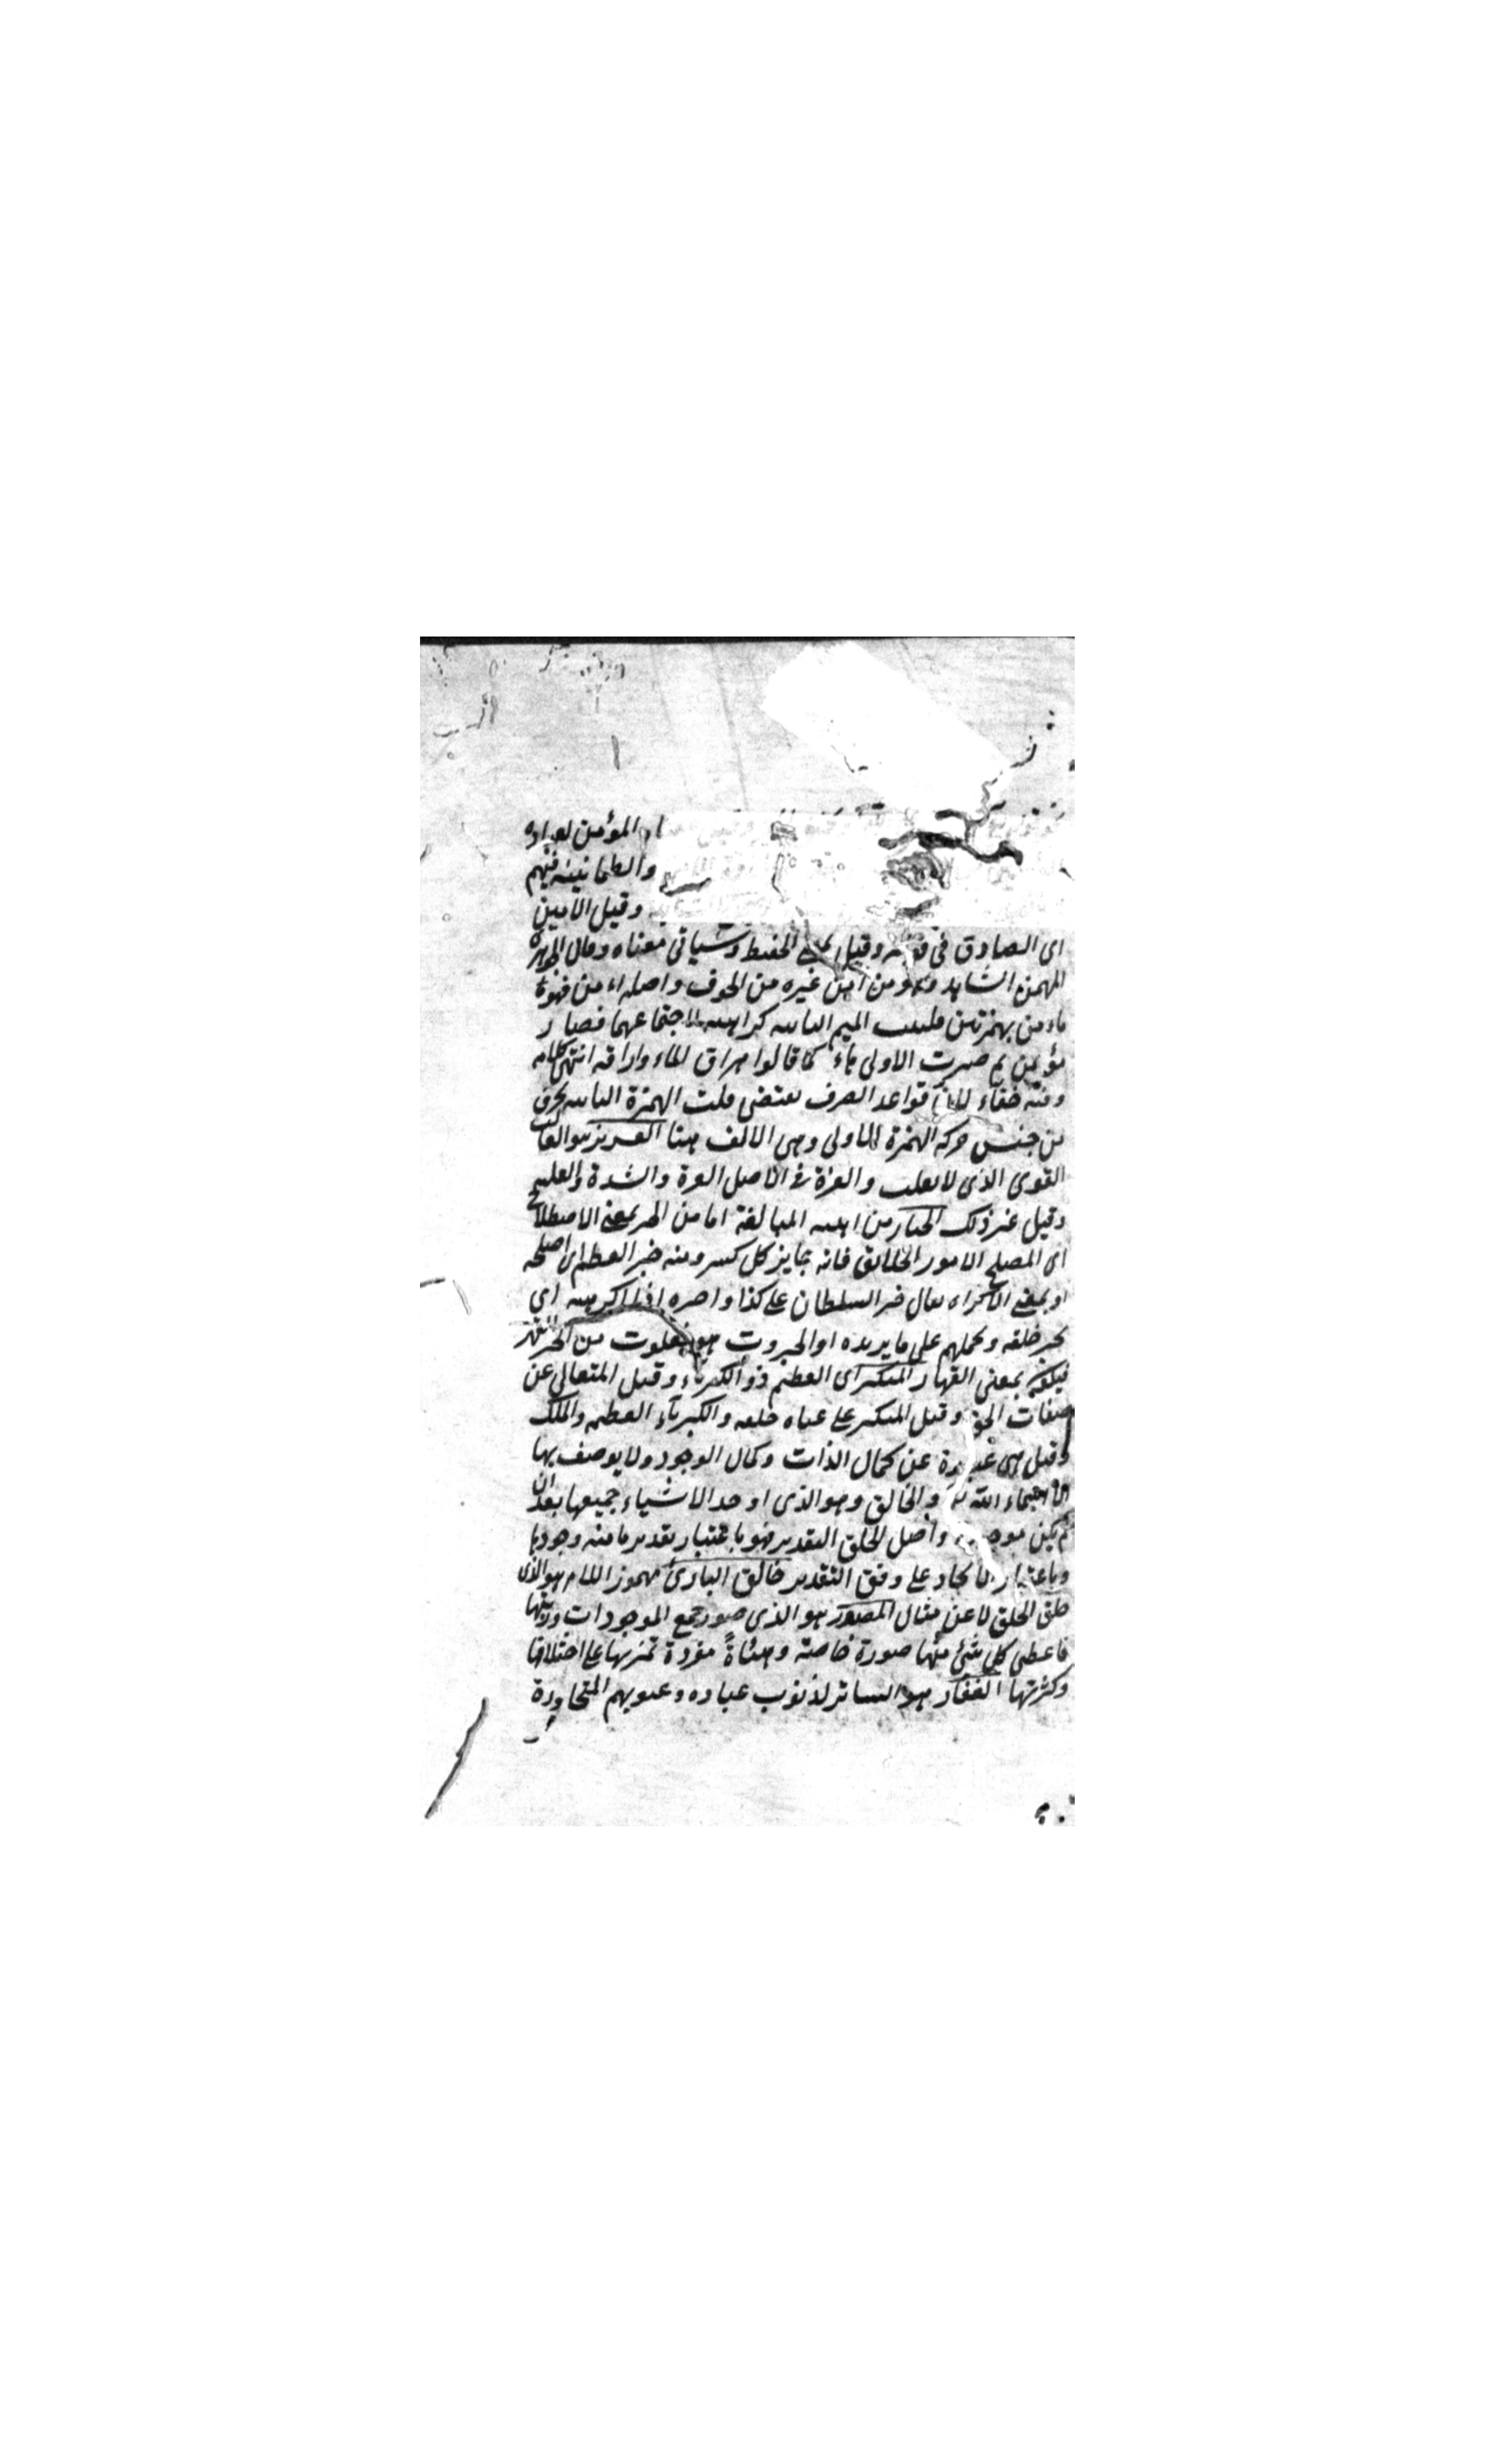 المؤمن لعباده
والطمانينة فيهم
وقيل الامين
اى الصادق فى وقيل بمعنى الحفيظ وسياتى معناه وقال الجوهرى
المهيمن الشاهد وهو من آمن غيره من الخوف واصله اءمن فهو
ماءمن بهمزتين قلبت الهمزة الثانية كراهية لاجتماعهما فصار
مؤيمن ثم صيرت الاولى هاء كما قالوا هراق الماء واراقه انتهى كلامه
وفيه خفاء لان قواعد الصرف يقتضى قلب الهمزة الثانية بحرف
من جنس حركة الهمزة الاولى وهى الالف هنا العزيز هو الغالب
القوى الذى لا يغلب والعزة فى الاصل القوة والشدة والغلبة
وقيل غير ذلك الجبار من ابنية المبالغة اما من الجبر بمعنى الاصطلاح
اى المصلح الامور الخلائق فانه جابر كل كسر ومنه جبر العظم اى اصلحه
او بمعنى الاكراه يقال جبر السلطان على كذا واجبره اذا اكرهه اى
يجبر خلقه ويحملهم على ما يريده او الجبروت هو فعلوت من الجبر القهر
فيكون بمعنى القهار المتكبر اى العظيم ذو الكبرياء وقيل المتعالى عن
صفات الخلق وقيل المتكبر على عتاه خلقه والكبرياء العظمة والملك
وقيل هى عبارة عن كمال الذات وكمال الوجود ولا يوصف بها
الا الله والخالق وهو الذى اوجد الاشياء جميعها بعد ان
لم يكن موجودة واصل الخلق التقدير فهو باعتبار تقدير ما منه وجودها
وباعتبار الايجاد على وفق التقدير خالق البارئ مهموز اللام هو الذى
خلق الخلق لا عن مثال المصور هو الذى صور جميع الموجودات ورتبها
فاعطى كل شئ منها صورة خاصة وهيئاةً مفردة تميز بها على اختلافها
وكثرتها الغفار هو الساتر لذنوب عباده وعيوبهم المتجاوزة